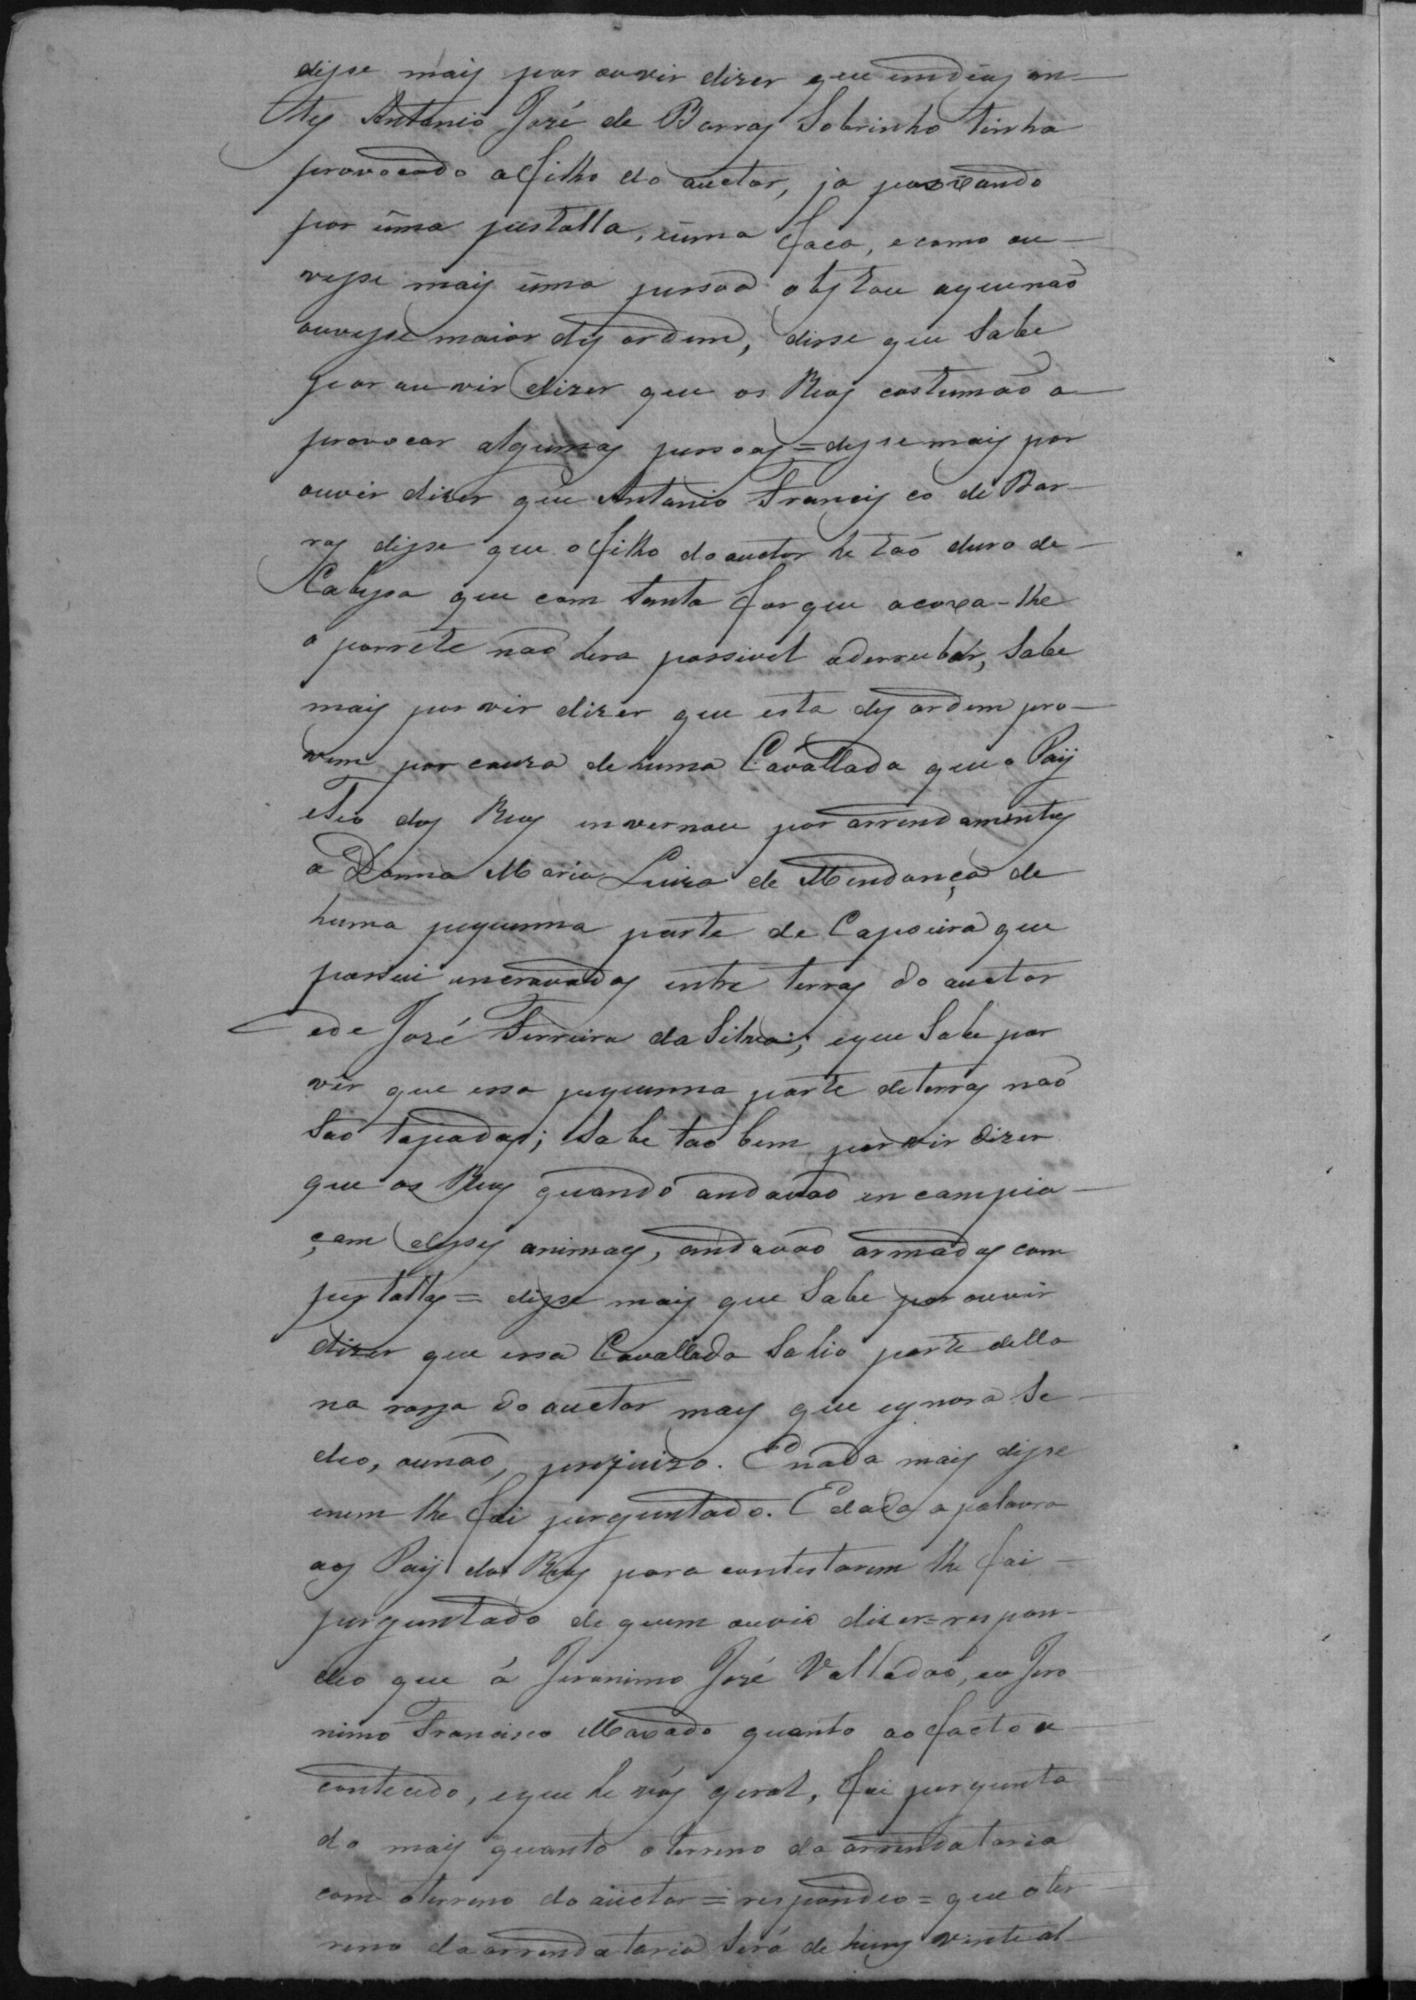 disse mais por ouvir dizer que um dias an-
tes Antonio José de Barros Sobrinho tinha
provocado a filho do auctor, ja puxando
por úma pistolla, e uma faca, e como ou-
vesse mais úma pessoa obstou a que não
ouvesse maior desordem, disse que Sabe
por ouvir dizer que os Reos costumão a-
provocar algumas pessoas = disse mais por
ouvir dizer que Antonio Francisco de Bar-
ros disse que o filho do auctor he tão duro de
Cabessa que com tanta força que acoxa-lhe
o porrete não hera possivel aderrubar, Sabe
mais por vir dizer que esta desordem pro-
vem por cauza de huma Cavallada que o Pay
e Tio dos Reos invernou por arrendamentos
a Donna Maria Luiza de Mendonça de
huma pequenna parte de Capoeira que
possui encravadas entre terras do auctor
e de José Ferreira da Silva; e que Sabe por
vir que essa pequenna parte de terras não
São tapadas; Sabe tão bem por vir dizer
que os Reos quando andavão en campia-
çam desses animaes, andavão armados com
pistollas = disse mais que Sabe por ouvir
dizer que essa Cavallada Sahio parte della
na rossa do auctor mas que ignora Se
deo, ou não, prejuizo. E nada mais disse
e nem lhe foi perguntado. E dada a palavra
aos Pays dos Reos para contestarem lhe foi
perguntado de quem ouvio dizer = respon-
deo que á Jeronimo José Valladão, e a Jero
nimo Francisco Maxado quanto ao facto a
contecido, e que he vós geral, foi pergunta
do mais quanto o terreno da arrendataria
com o terreno do auctor = respondeo = que o ter
reno da arrendataria Será de huns vinte al